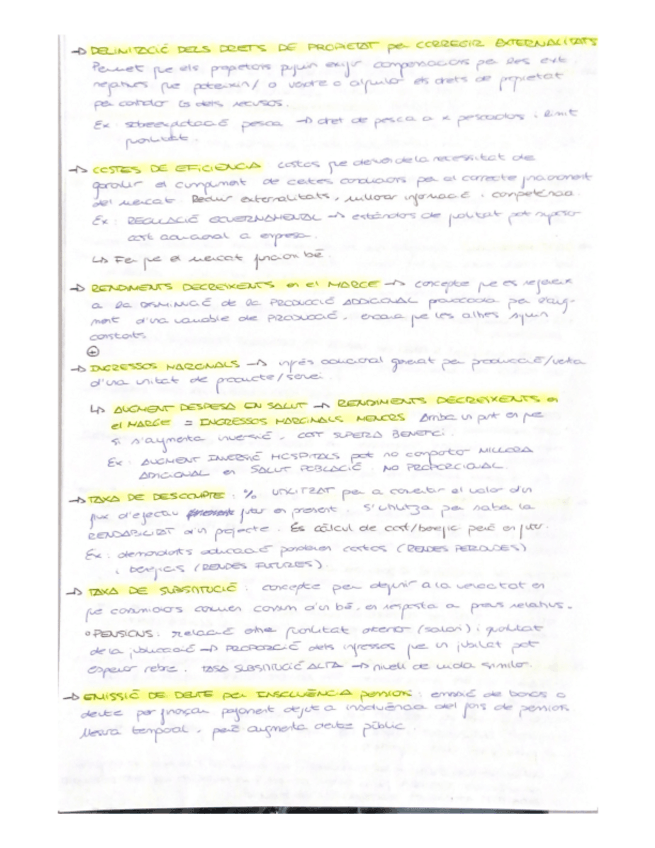 → DELIMITACIÓ DELS DRETS DE PROPIETAT per CORREGIR EXTERNALITATS
Permet que els propietaris puguin exigir compensacions per les ext.
negatives que pateixin/o vendre o alquilar els drets de propietat
per controlar ús dels recursos.
Ex: sobreexplotació pesca → dret de pesca a x pescadors i limit
→ COSTES DE EFICIENCIA: costos que deriven de la necessitat de
garantir el compliment de certes condicions per al correcte funcionament
del mercat. Reduir externalitats, millorar informació i competència.
Ex: REGULACIÓ GOVERNAMENTAL → estándars de qualitat pot suposar
cost adicional a empresa.
↳ Fer que el mercat funcioni bé.
→ RENDIMENTS DECREIXENTS en el MARGE → concepte que es refereix
a la DISMINUCIÓ de la PRODUCCIÓ ADDICIONAL provocada per l'aug-
ment d'una variable de PRODUCCIÓ, encara que les altres siguin
constants.
→ INGRESSOS MARGINALS → ingrés adicional generat per producció/venta
d'una unitat de producte/servei.
↳ AUGMENT DESPESA EN SALUT → RENDIMENTS DECREIXENTS en
el MARGE = INGRESSOS MARGINALS MENORS. Arriba un punt en que
si s'augmenta inversió, COST SUPERA BENEFICI.
Ex: AUGMENT INVERSIÓ HOSPITALS pot no comportar MILLORA
ADICIONAL en SALUT POBLACIÓ. NO PROPORCIONAL.
→ TAXA DE DESCOMPTE: % UTILITZAT per a convertir el valor d'un
flux d'efectiu futur en present. S'utilitza per saber la
RENDABILITAT d'un projecte. És càlcul de cost/benefici però en futur.
Ex: demandants educació ponderen costos (RENDES PERDUDES)
i beneficis (RENDES FUTURES).
→ TAXA DE SUBSTITUCIÓ: concepte per definir a la velocitat en
que consumidors canvien consum d'un bé, en resposta a preus relatius.
• PENSIONS: relació entre quantitat anterior (salari) i quantitat
de la jubilació → PROPORCIÓ dels ingressos que un jubilat pot
esperar rebre. TAXA SUBSTITUCIÓ ALTA → nivell de vida similar.
→ EMISSIÓ DE DEUTE per INSOLVÈNCIA pensions: emissió de bonos o
deute per finançar pagament degut a insolvència del fons de pensions.
temporal, però augmenta deute públic.